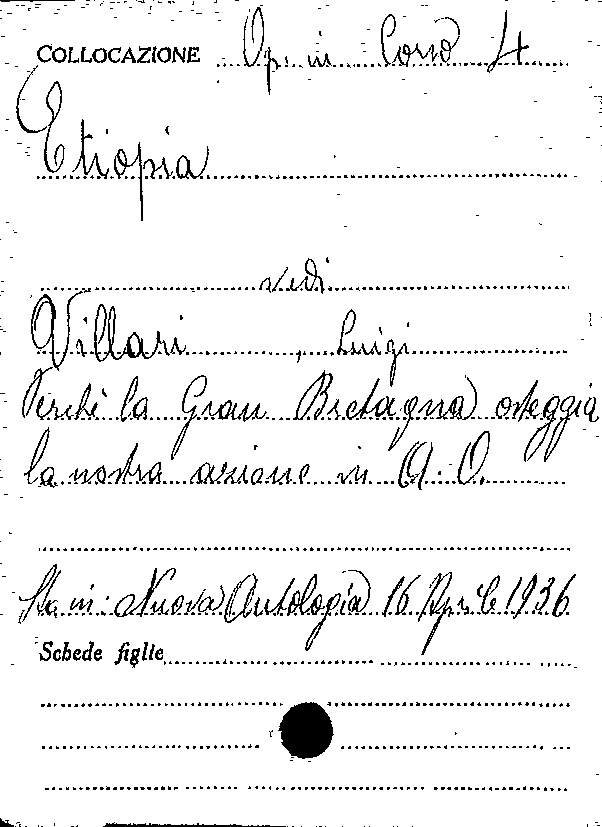 COLLOCAZIONE Op. in Corso 4
Etiopia
vedi
Villari, Luigi
Perchè la Gran Bretagna osteggia
la nostra azione in A.O.
Sta in: Nuova Antologia 16 Aprile 1936
Schede figlie